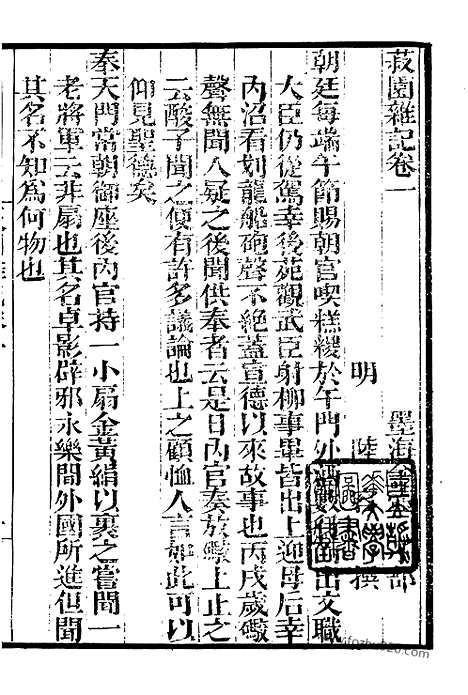 菽園雜記卷一
墨海金壺 部
明 陸 撰
朝廷每端午節賜朝官喫糕糉於午門外酒數行而出文職
大臣仍從駕幸後苑觀武臣射柳事畢皆出上迎母后幸
內沼看划龍船砲聲不絕蓋宣德以來故事也丙戌歲礮
聲無聞人疑之後聞供奉者云是日內官奏放礮上止之
云酸子聞之便有許多議論也上之顧恤人言如此可以
仰見聖德矣
奉天門常朝御座後內官持一小扇金黃絹以裹之嘗聞一
老將軍云非扇也其名卓影辟邪永樂間外國所進但聞
其名不知爲何物也